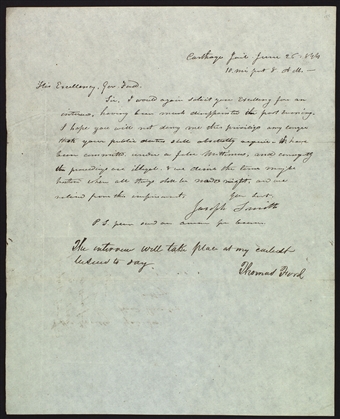 Carthage Jail June 26th 1844
10. mi. past 8 A.M.—
His Excellency, Gov. Ford,
Sir, I would again solicit your Excellency for an
interview, having been much disappointed the past evening.
I hope you will not deny me this privilege any longer
than your public duties shall absolutely require. We have
been committed under a false Mittimus, and consequently
the proceedings are illegal. & we desire the time may be
hastened when all things shall be made right, and we
relieved from this imprisonment. Your Servt.
Joseph Smith
P.S. please send an answer by bearer
The interview will take place at my earliest
leisure to day.
Thomas Ford